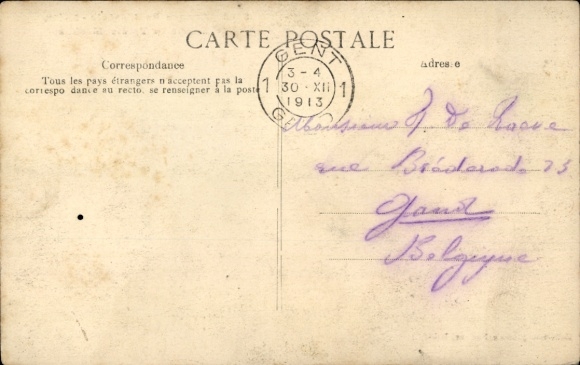 CARTE POSTALE
Correspondance
Tous les pays étrangers n'acceptent pas la
correspo dance au recto. se renseigner à la poste
Adresse
GENT
3-4
1 30 · XII 1
1913
Monsieur De
rue Bréderode 23
Gand
Belgique